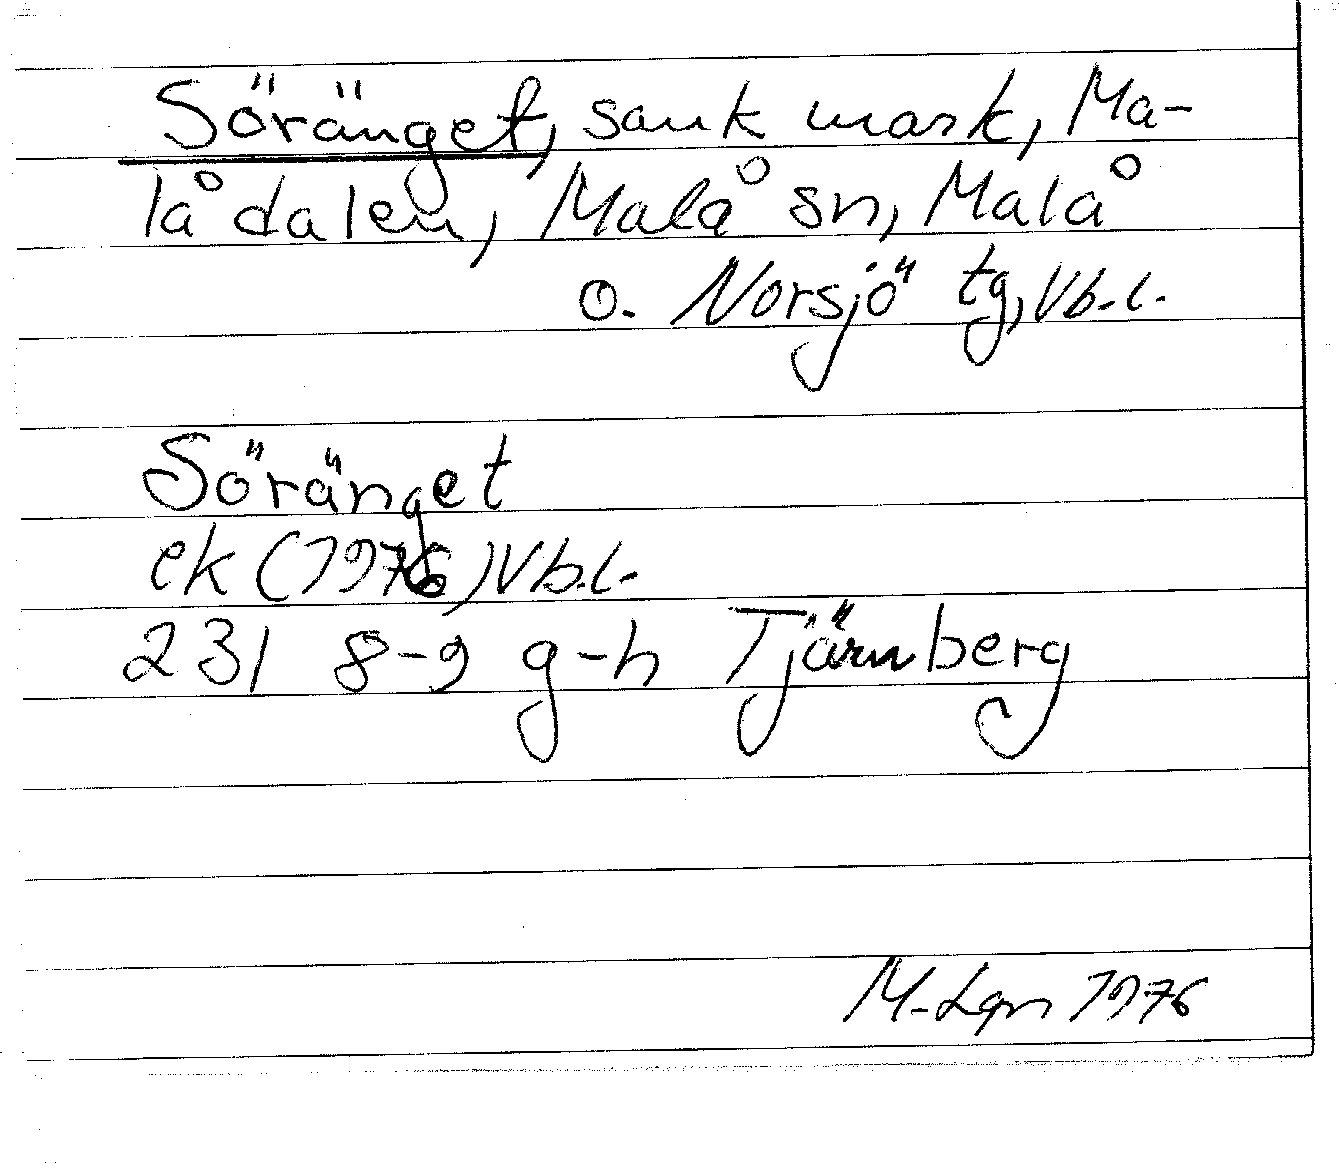 Söränget, sank mark, Ma-
lådalen, Malå sn, Malå
o. Norsjö tg, Vb.l.
Söränget
ek (1976) Vb.l.
231 8-9 g-h Tjärnberg
M. Lgn 1976